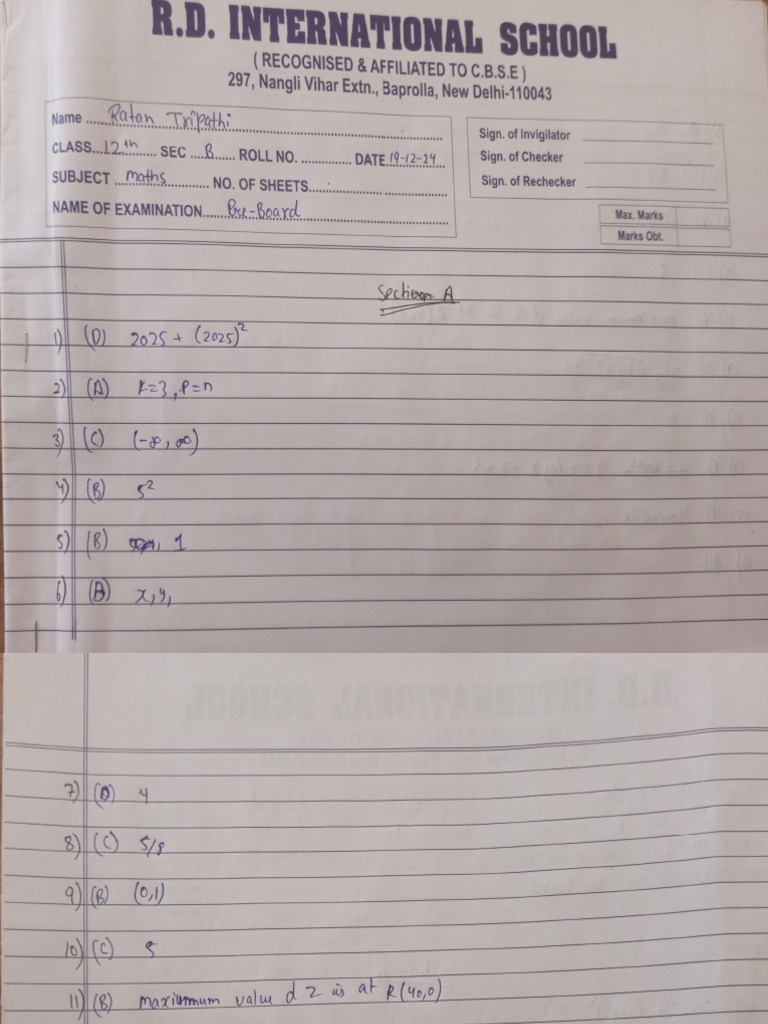 R.D. INTERNATIONAL SCHOOL
( RECOGNISED & AFFILIATED TO C.B.S.E )
297, Nangli Vihar Extn., Baprolla, New Delhi-110043
Name Ratan Tripathi
CLASS 12th SEC B ROLL NO. DATE 19-12-24
SUBJECT maths NO. OF SHEETS
NAME OF EXAMINATION Pre-Board
Sign. of Invigilator
Sign. of Checker
Sign. of Rechecker
Max. Marks
Marks Obt.
Section A
1) (D) 2025 + (2025)²
2) (A) k=3, P=n
3) (C) (-∞, ∞)
4) (B) 5²
5) (B) 1
6) (B) x, y,
7) (D) 4
8) (C) 5/8
9) (B) (0,1)
10) (C) 5
11) (B) maximum value d z is at R(40,0)